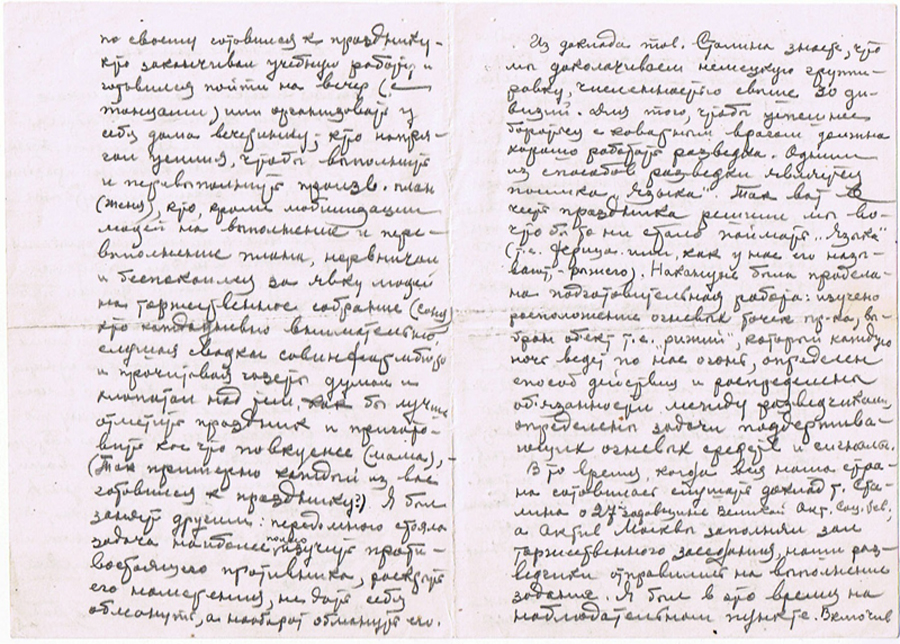 по своему готовился к празднику -
кто заканчивал учебную работу и
готовился пойти на вечер (с
танцами) или организовать у
себя дома вечеринку; кто напря-
гал усилия, чтобы выполнить
и перевыполнить произв. план
(Женя), кто, кроме мобилизации
людей на выполнение и пере-
выполнение плана, нервничал
и беспокоился за явку людей
на торжественное собрание
кто каждодневно внимательно
слушая сводки совинформбюро
и прочитывая газеты думал и
хлопотал над тем, как бы лучше
отметить праздник и пригото-
вить кое что повкуснее (мама), -
(Так примерно каждый из вас
готовился к празднику?) Я был
занят другим: передо мною стояла
задача наиболее полно изучить проти-
востоящего противника, раскрыть
его намерения, не дать себя
обмануть, а наоборот обмануть его.
Из доклада тов. Сталина знаете, что
мы доколачиваем немецкую группи-
ровку, численностью свыше 30 ди-
визий. Для того, чтобы успешнее
бороться с коварным врагом должна
хорошо работать разведка. Одним
из способов разведки является
поимка "языка". Так вот в
честь праздника решили мы во-
что бы то ни стало поймать "языка"
(т.е. фрица или, как у нас его назы-
вают - рыжего). Накануне была продела-
на подготовительная работа: изучено
расположение огневых точек пр-ка, вы-
бран объект т.е. "рыжий", который каждую
ночь ведет по нас огонь, определен
способ действия и распределены
обязанности между разведчиками,
определены задачи поддержива-
ющих огневых средств и сигналы.
В то время, когда вся наша стра-
на готовилась слушать доклад т. Ста-
лина о 27 годовщине Великой Окт. Соц. Рев.,
а актив Москвы заполнял зал
торжественного заседания, наши раз-
ведчики отправились на выполнение
задания. Я был в это время на
наблюдательном пункте. Включив